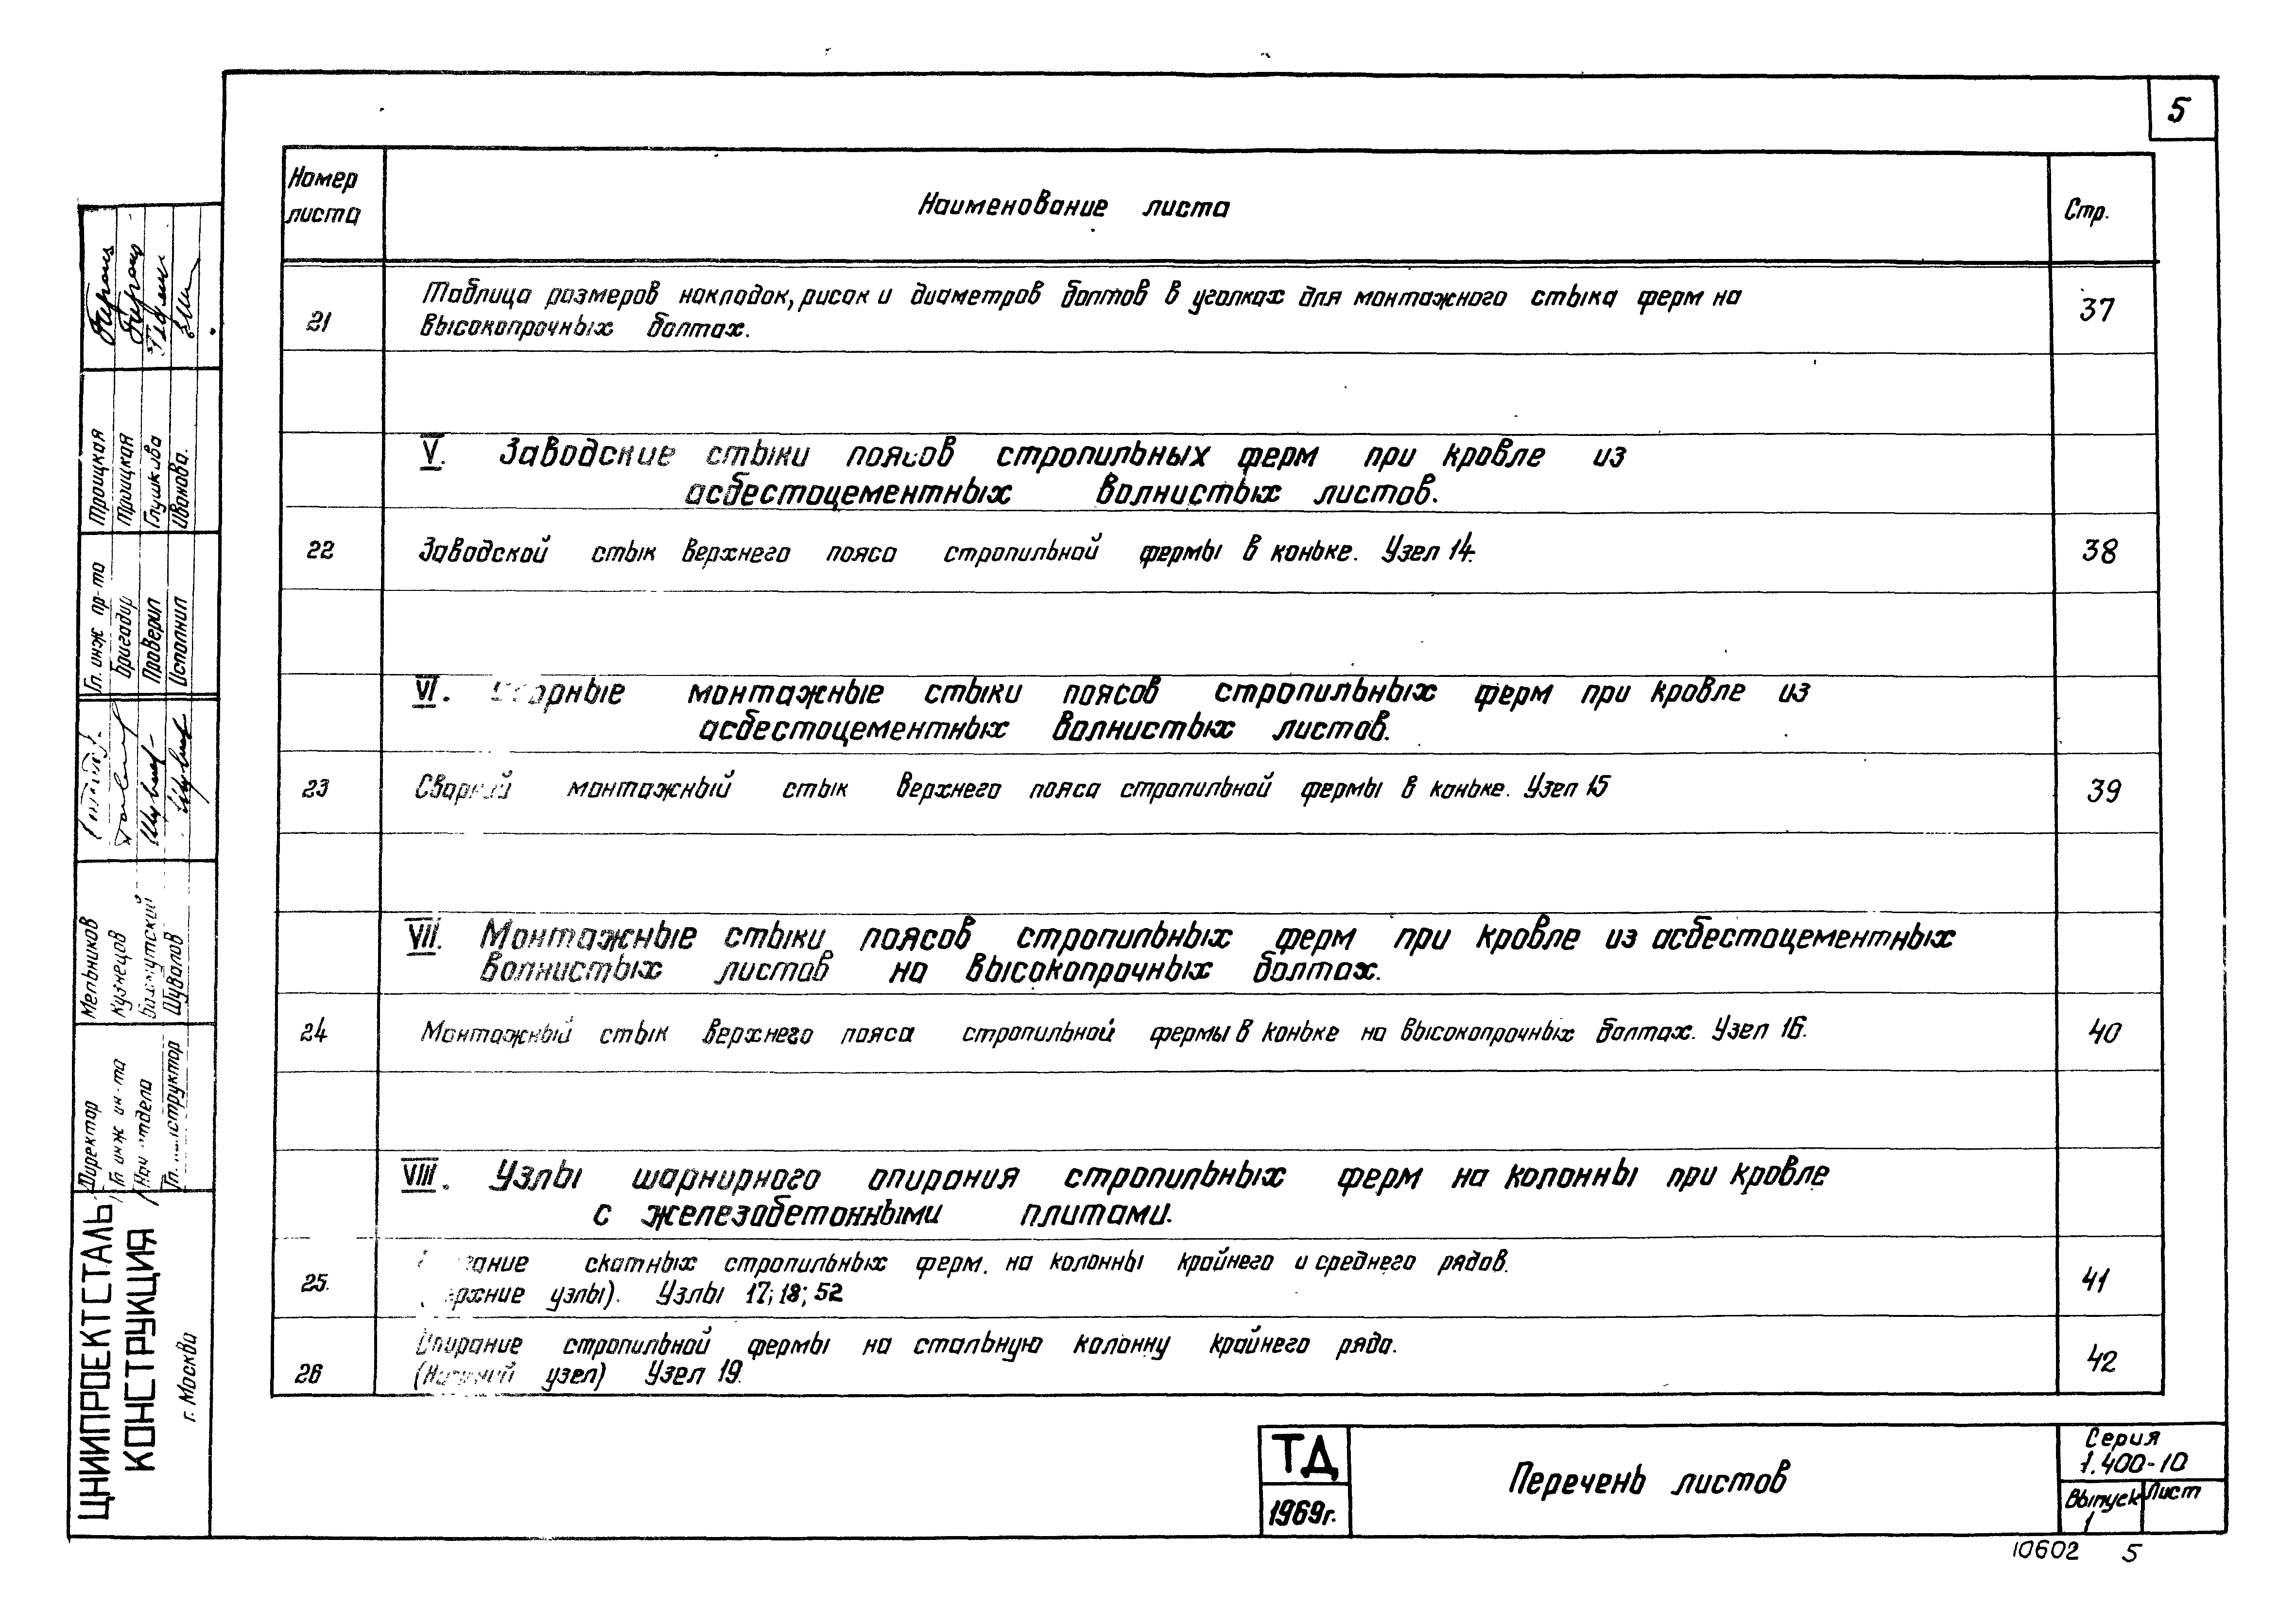 5
Номер листа
Наименование листа
Стр.
21
Таблица размеров накладок, рисок и диаметров болтов в уголках для монтажного стыка ферм на
высокопрочных болтах.
37
V. Заводские стыки поясов стропильных ферм при кровле из
асбестоцементных волнистых листов.
22
Заводской стык верхнего пояса стропильной фермы в коньке. Узел 14.
38
VI. монтажные стыки поясов стропильных ферм при кровле из
асбестоцементных волнистых листов.
23
Сварной монтажный стык верхнего пояса стропильной фермы в коньке. Узел 15
39
VII. Монтажные стыки поясов стропильных ферм при кровле из асбестоцементных
волнистых листов на высокопрочных болтах.
24
Монтажный стык верхнего пояса стропильной фермы в коньке на высокопрочных болтах. Узел 16.
40
VIII. Узлы шарнирного опирания стропильных ферм на колонны при кровле
с железобетонными плитами.
25.
скатных стропильных ферм. на колонны крайнего и среднего рядов.
узлы). Узлы 17; 18; 52
41
26
Опирание стропильной фермы на стальную колонну крайнего ряда.
(Нижний узел) Узел 19.
42
ТД
1969г.
Перечень листов
Серия
1.400-10
Выпуск
1
Лист
10602 5
Гл. инж пр-та Троицкая
Бригадир Троицкая
Проверил Глушкова
Исполнил Иванова.
Директор Мельников
Гл инж ин-та Кузнецов
Нач отдела
Гл. Шувалов
ЦНИИПРОЕКТСТАЛЬ
КОНСТРУКЦИЯ
г. Москва